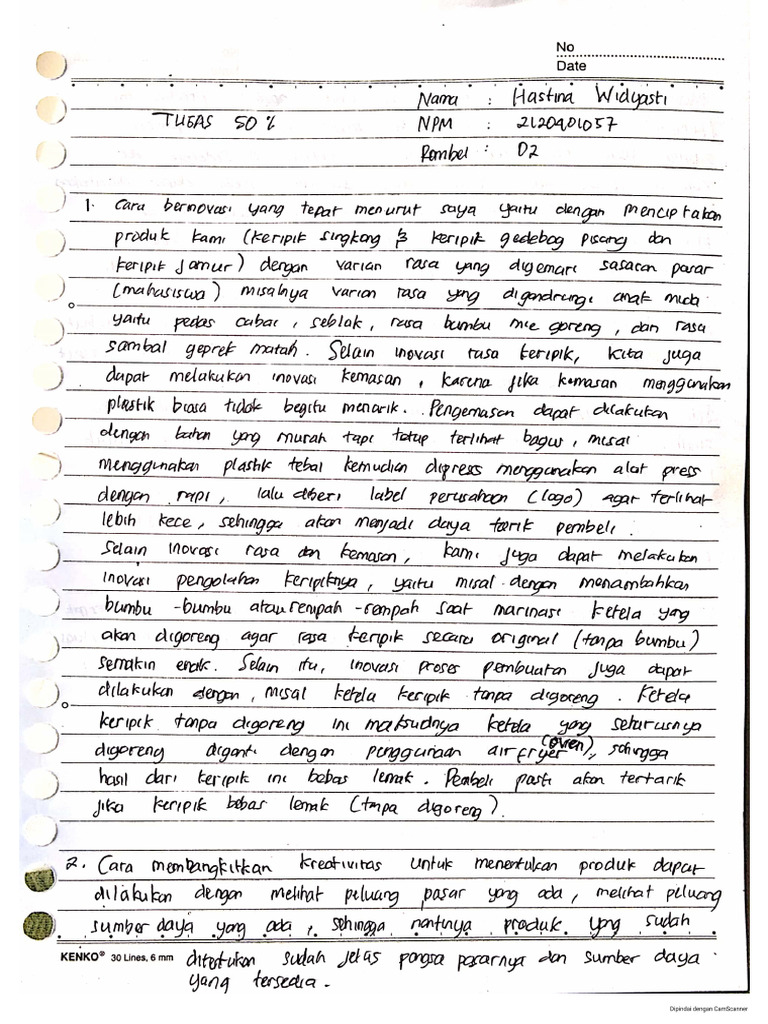 No
Date
Nama : Hastina Widyasti
TUGAS 50 %
NPM : 2120401057
Rombel : 02
1. Cara bernovasi yang tepat menurut saya yaitu dengan menciptakan
produk kami (keripik singkong & keripik gedebog pisang dan
keripik jamur) dengan varian rasa yang digemari sasaran pasar
(mahasiswa) misalnya varian rasa yng digandrungi anak muda
yaitu pedas cabai, seblak, rasa bumbu mie goreng, dan rasa
sambal geprek matah. Selain inovasi rasa keripik, kita juga
dapat melakukan inovasi kemasan, karena jika kemasan menggunakan
plastik biasa tidak begitu menarik. Pengemasan dapat dilakukan
dengan bahan yang murah tapi tetap terlihat bagus, misal
menggunakan plastik tebal kemudian dipress menggunakan alat press
dengan rapi, lalu diberi label perusahaan (logo) agar terlihat
lebih kece, sehingga akan menjadi daya tarik pembeli.
Selain inovasi rasa dan kemasan, kami juga dapat melakukan
inovasi pengolahan keripiknya, yaitu misal dengan menambahkan
bumbu-bumbu atau rempah-rempah saat marinasi ketela yng
akan digoreng agar rasa keripik secara original (tanpa bumbu)
semakin enak. Selain itu, inovasi proses pembuatan juga dapat
dilakukan dengan, misal ketela keripik tanpa digoreng. Ketela
keripik tanpa digoreng ini maksudnya ketela yang seharusnya
digoreng diganti dengan penggunaan airfryer (oven), sehingga
hasil dari keripik ini bebas lemak. Pembeli pasti akan tertarik
jika keripik bebas lemak (tanpa digoreng).
2. Cara membangkitkan kreativitas untuk menentukan produk dapat
dilakukan dengan melihat peluang pasar yang ada, melihat peluang
sumber daya yang ada, sehingga nantinya produk yng sudah
KENKO® 30 Lines, 6 mm
ditentukan sudah jelas pangsa pasarnya dan sumber daya
yang tersedia.
Dipindai dengan CamScanner